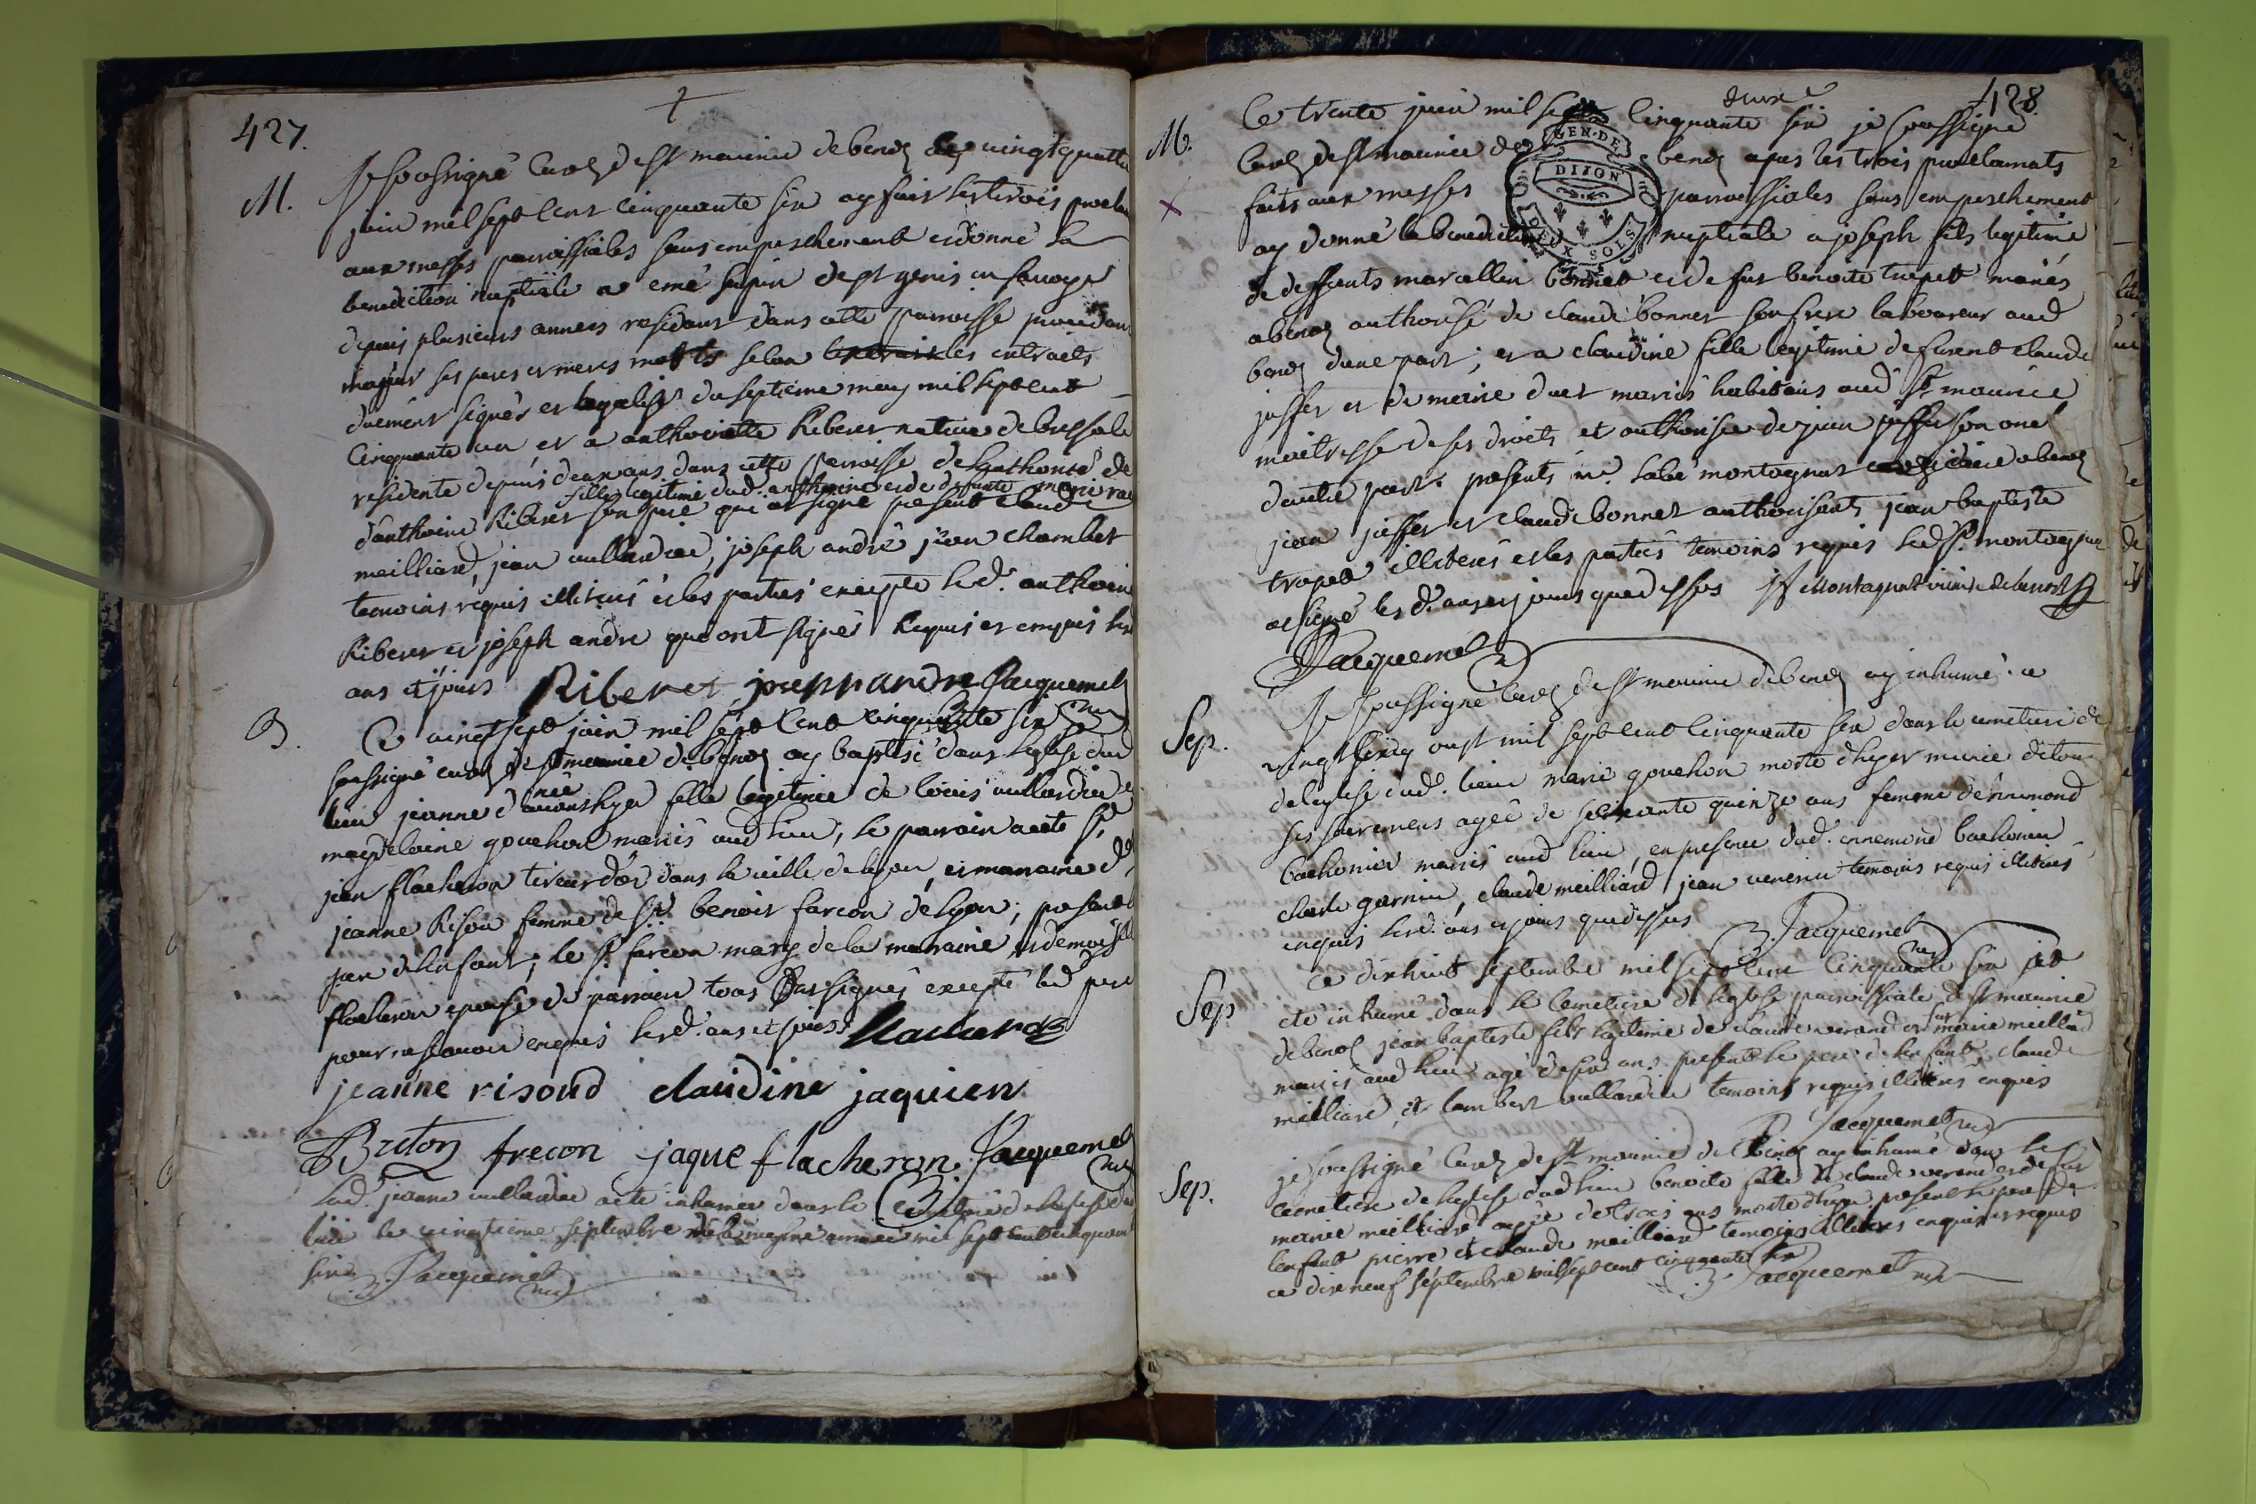 427.
M. Je soussigné curé de st maurice de benoz ce vingt quatre
juin mil sept cent cinquante six ay fait les trois procla
aux messes paroissiales sans empeschement et donné la
benediction nuptiale a emé de st genis en savoye
depuis plusieurs années residant dans cette paroisse
majeur ses peres et meres morts selon les extraits
duement signés et legalisés du septieme may mil sept cent
cinquante un et a anthoinette Riberet native de
residente depuis deux ans dans cette paroisse de lauthorité de
fille legitime dud. anthoine et de defunte marie
danthoine Riberet son pere qui at signé present claude
meilliard, jean vullardie, joseph andré jean chambet
temoins requis illiterés et les parties excepté led. anthoine
Riberet et joseph andre qui ont signés Requis et enquis les
ans et jours Riberet josepp andre Jacquemet
B. Ce vingt sept juin mil sept cent cinquante six je
soussigné curé de st maurice de benoz ay baptisé dans leglise dud
lieu jeanne née davanthyer fille legitime de louis vullardie et
magdelaine gouchon mariés aud lieu, le parrain a eté sr
jean flacheron tireur dor dans la ville de lyon, et marraine de
jeanne Risou femme de sr benoit farcon de lyon; present
pere de lenfant; le sr farcon mary de la marraine, et demoiselle
flacheron epouse du parrain tous soussignés excepté led pere
pour ne scavoir enquis lesd. ans et jours flacheron
jeanne risoud claudine jaquien
Briton frecon jaque flacheron Jacquemet
lad. jeanne vullardie a eté inhumée dans le cimetiere de leglise dud
lieu le vingtieme septembre de la mesme année mil sept cent cinquante
six Jacquemet
428.
deux
M. Ce trente juin mil sept cinquante six je soussigné
curé de st maurice de benoz apres les trois proclamats
faits aux messes paroissiales sans empeschement
ay donné la benediction nuptiale a joseph fils legitime
GEN. DE
DIJON
DEUX SOLS
de deffunts marcellin bonnet et de fut benoite trepet mariés
a benoz authorisé de claude bonnet son frere laboureur aud
benoz dune part; et a claudine fille legitime de furent claude
joffet et de marie duet mariés habitans aud st maurice
maitresse de ses droits et authorisée de jean joffet son oncl
dautre part. presents mr. labé montagnat vicaire a benoz
jean joffet et claude bonnet authorisants, jean baptiste
trapet illiterés et les parties temoins requis led sr. montagnat
at signé les d. ans et jours que dessus Montagnat vicaire de benoz
Jacquemet
Sep. Je soussigné curé de st maurice de benoz ay inhumé ce
vingt cinq oust mil sept cent cinquante six dans le cimetiere de
de leglise dud. lieu marie gouchon morte dhyer munie de tous
ses sacremens agée de soixante quinze ans femme dennemond
bachonier mariés aud lieu, en presence dud. ennemond bachonier
charle garnier, claude meilliard jean venerin temoins requis illiterés
enquis lesd. ans et jours que dessus Jacquemet
Sep ce dixhuit septembre mil sept cent cinquante six at
eté inhumé dans le cemetiere de leglise paroissiale de st maurice
de benoz jean baptiste fils legitime de claude verand et fut marie meilliard
mariés aud lieu agé de six ans. presents le pere de lenfant, claude
meilliard, et lambert vullardie temoins requis illiterés enquis
Jacquemet
Sep. je soussigné curé de st maurice de benoz ay inhumé dans le
cemetiere de leglise dud lieu benoite fille de claude verand et de fut
marie meilliard agée de trois ans morte dhyer. present le pere de
lenfant pierre et claude meilliard temoins illiteres enquis et requis
ce dix neuf septembre mil sept cent cinquante six Jacquemet